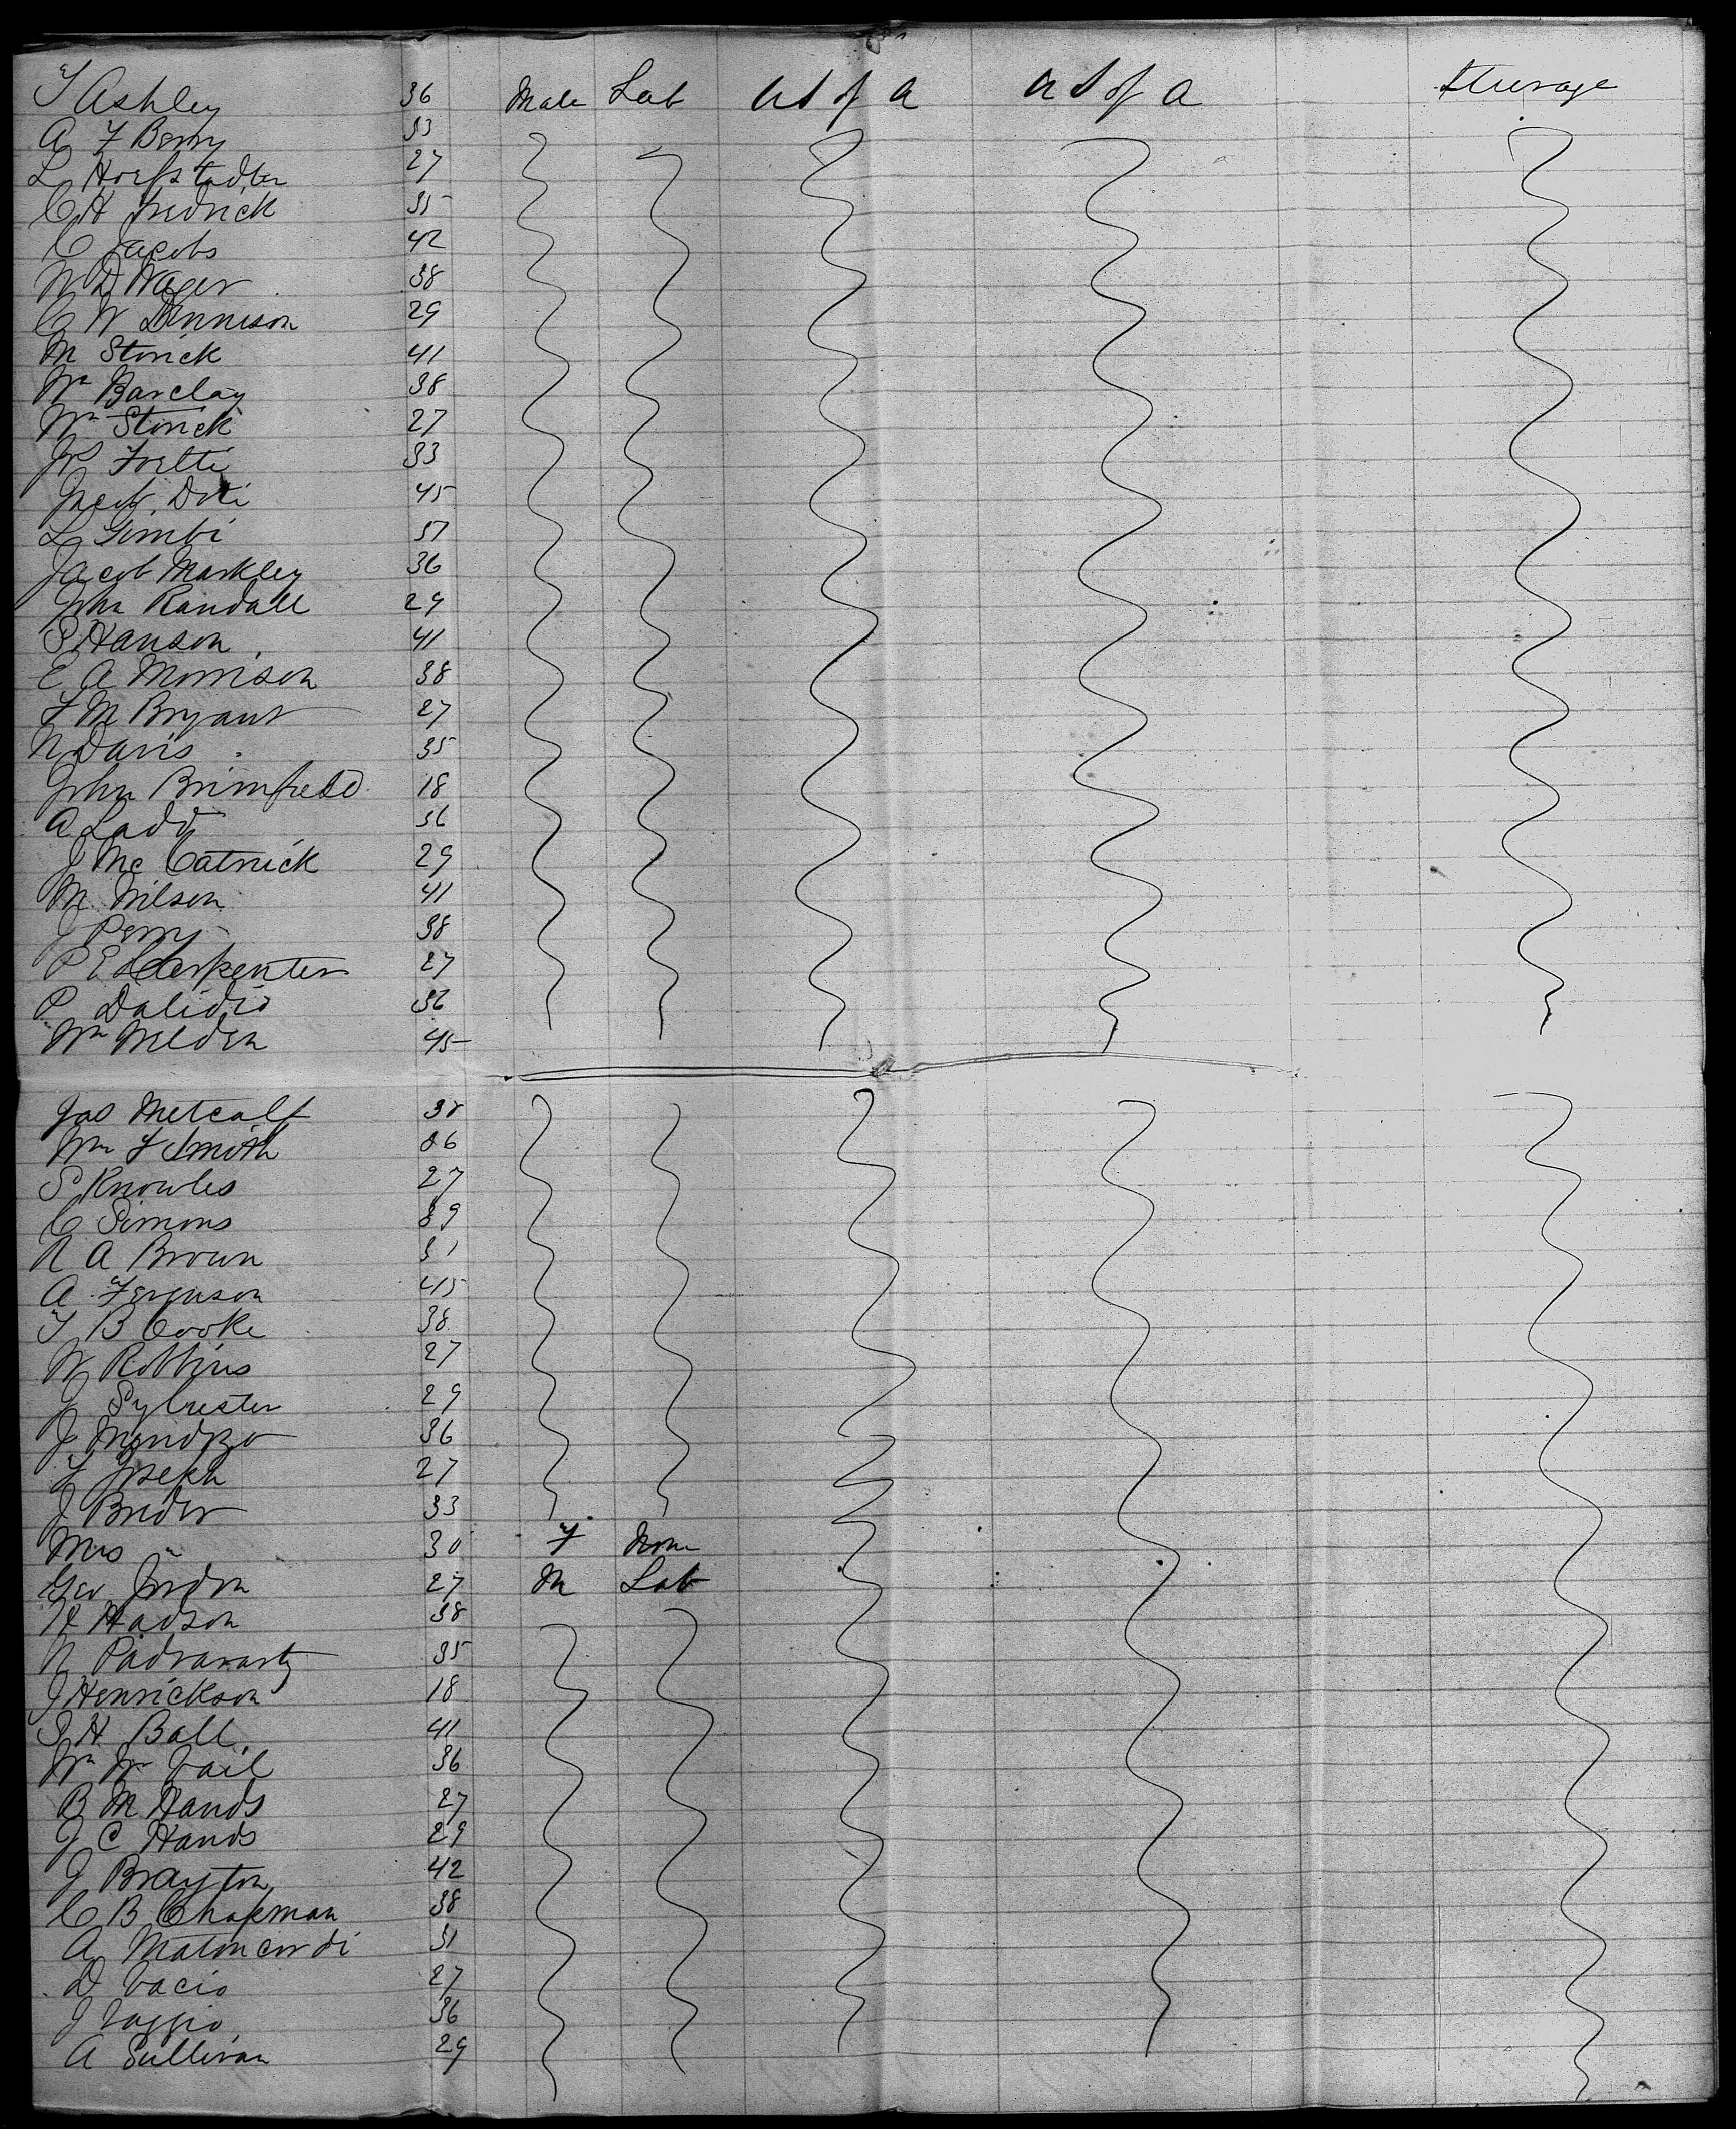 T Ashley 36 Male Lab U S of A U S of A Steerage
A F Berry 33
L Hoefstadter 27
C H Fredrick 35
C Jacobs 42
W D Wager 38
C W Dennison 29
M Storick 41
Wm Barclay 38
Wm Storick 27
33
Jacob Doti 45
L Gimbi 51
Jacob Markley 36
John Randall 29
P Hanson 41
E A Morrison 38
F M Bryant 27
N Davis 35
John Brimfield 18
A Ladd 36
J Mc Catrick 29
M Wilson 41
J Perry 38
P E Carpenter 27
P Dalidio 36
Wm Welden 45
Jas Metcalf 38
Wm F Smith 36
S Knowles 27
C Simons 39
R A Brown 31
A Ferguson 45
T B Cooke 38
W Robbins 27
J Sylvester 29
J Mendzo 36
F Joseph 27
J Breder 33
Mrs " 30 F None
Geo Jordon 27 M Lab
H Hadson 38
N 35
J Henrickson 18
S H Ball 41
Wm W Vail 36
B M Hands 27
J C Hands 29
J Brayton 42
C B Chapman 38
A 31
D Vacio 27
J 36
A Sullivan 29